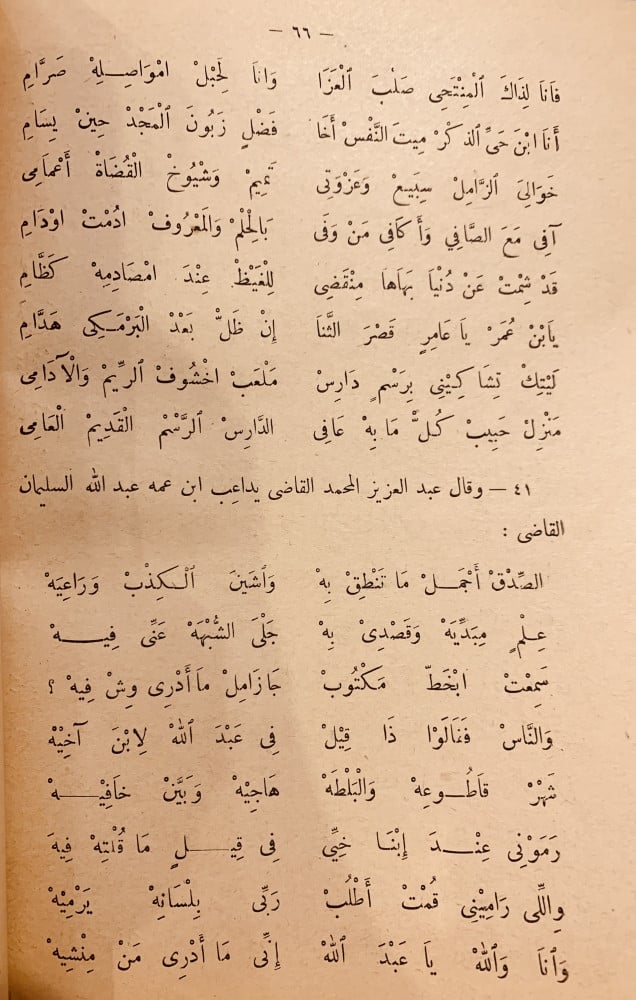 – ٦٦ –
فَانَا لِذَاكَ اَلْمِنْتَحِى صَلْبَ اَلْعَزَا وَانَا لِحَبْلْ امْوَاصِلِهْ صَرَّامِ
أَنَا ابْنَ حَىِّ الذكْرْ مِيتَ النَّفْسْ أَخَا فَضْلٍ زَبُونَ الْمَجْدْ حِينْ يِسَامِ
خَوَالِىَ الزَّامِلْ سِبَيِعْ وَعَزْوَتِى تَمِيمْ وَشْيُوخْ الْقُضَاةْ أَعْمَامِى
آفِى مَعَ الصَّافِي وَأَكَافِى مَنْ وَفَى بَالْحِلْمْ وَالْمَعْرُوفْ ادُمْتْ اوْدَامِ
قَدْ شِمْتْ عَنْ دُنْيَا بَهَاهَا مِنْقَضِى لِلْغَيْظْ عِنْدَ امْصَادِمِهْ كَظَّامِ
يَابْنْ عُمَرْ يَا عَامِرٍ قَصْرَ الثَّنَا إِنْ ظَلّْ بَعْدْ الْبَرْمَكِى هَدَّامِ
لَيْتِكْ تِشَاكِينِى بِرَسْمٍ دَارِسْ مَلْعَبْ اخْشُوفْ الرِّيمْ وَالْآدَامِى
مَنْزِلْ حَبِيبْ كُلّْ مَا بِهْ عَافِى الدَّارِسْ الرَّسْمْ الْقَدِيمْ الْعَامِى
٤١ – وقال عبد العزيز المحمد القاضى يداعب ابن عمه عبد الله السليمان
القاضى :
الصِّدْقْ أَجْمَلْ مَا تَنْطِقْ بِهْ وَاشَيْنَ الْكِذْبْ وَرَاعِيَهْ
عِلْمٍ مِبَدِّيَهْ وَقَصْدِىْ بِهْ جَلْىَ الشُّبْهَهْ عَنِّى فِيهْ
سَمِعْتْ ابْخَطّْ مَكْتُوبْ جَا زَامِلْ مَا أَدْرِى وِشْ فِيهْ ؟
وَالنَّاسْ فَنَالَوْا ذَا قِيلْ فِى عَبْدَ اللهْ لِابْنَ آخِيْهْ
شَهْرْ قَاطُوعِهْ وَالْبَلْطَهْ هَاجِيْهْ وَبَيَّنْ خَافِيْهْ
رَمَوْنِى عِنْدَ إِبْنَا خِيِّى فِى قِيلٍ مَا قُلْتِهْ فِيهَ
وِاللِّى رَامِيْنِى قُمْتْ أَطْلُبْ رَبِّى بِلْسَانِهْ يَرْمِيْهْ
وَانَا وَاللهْ يَا عَبْدَ اللهْ إِنِّى مَا أَدْرِى مَنْ مِنْشِيهْ